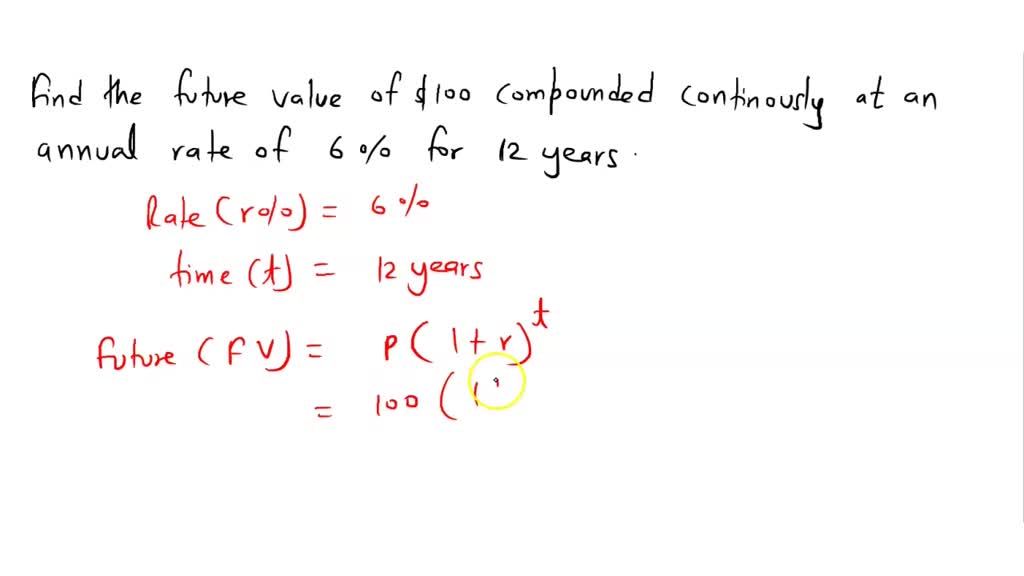 Find the future value of $100 compounded continously at an
annual rate of 6% for 12 years.
Rate (r%) = 6%
time (t) = 12 years
Future (FV) = P(1+r)^t
= 100 (1